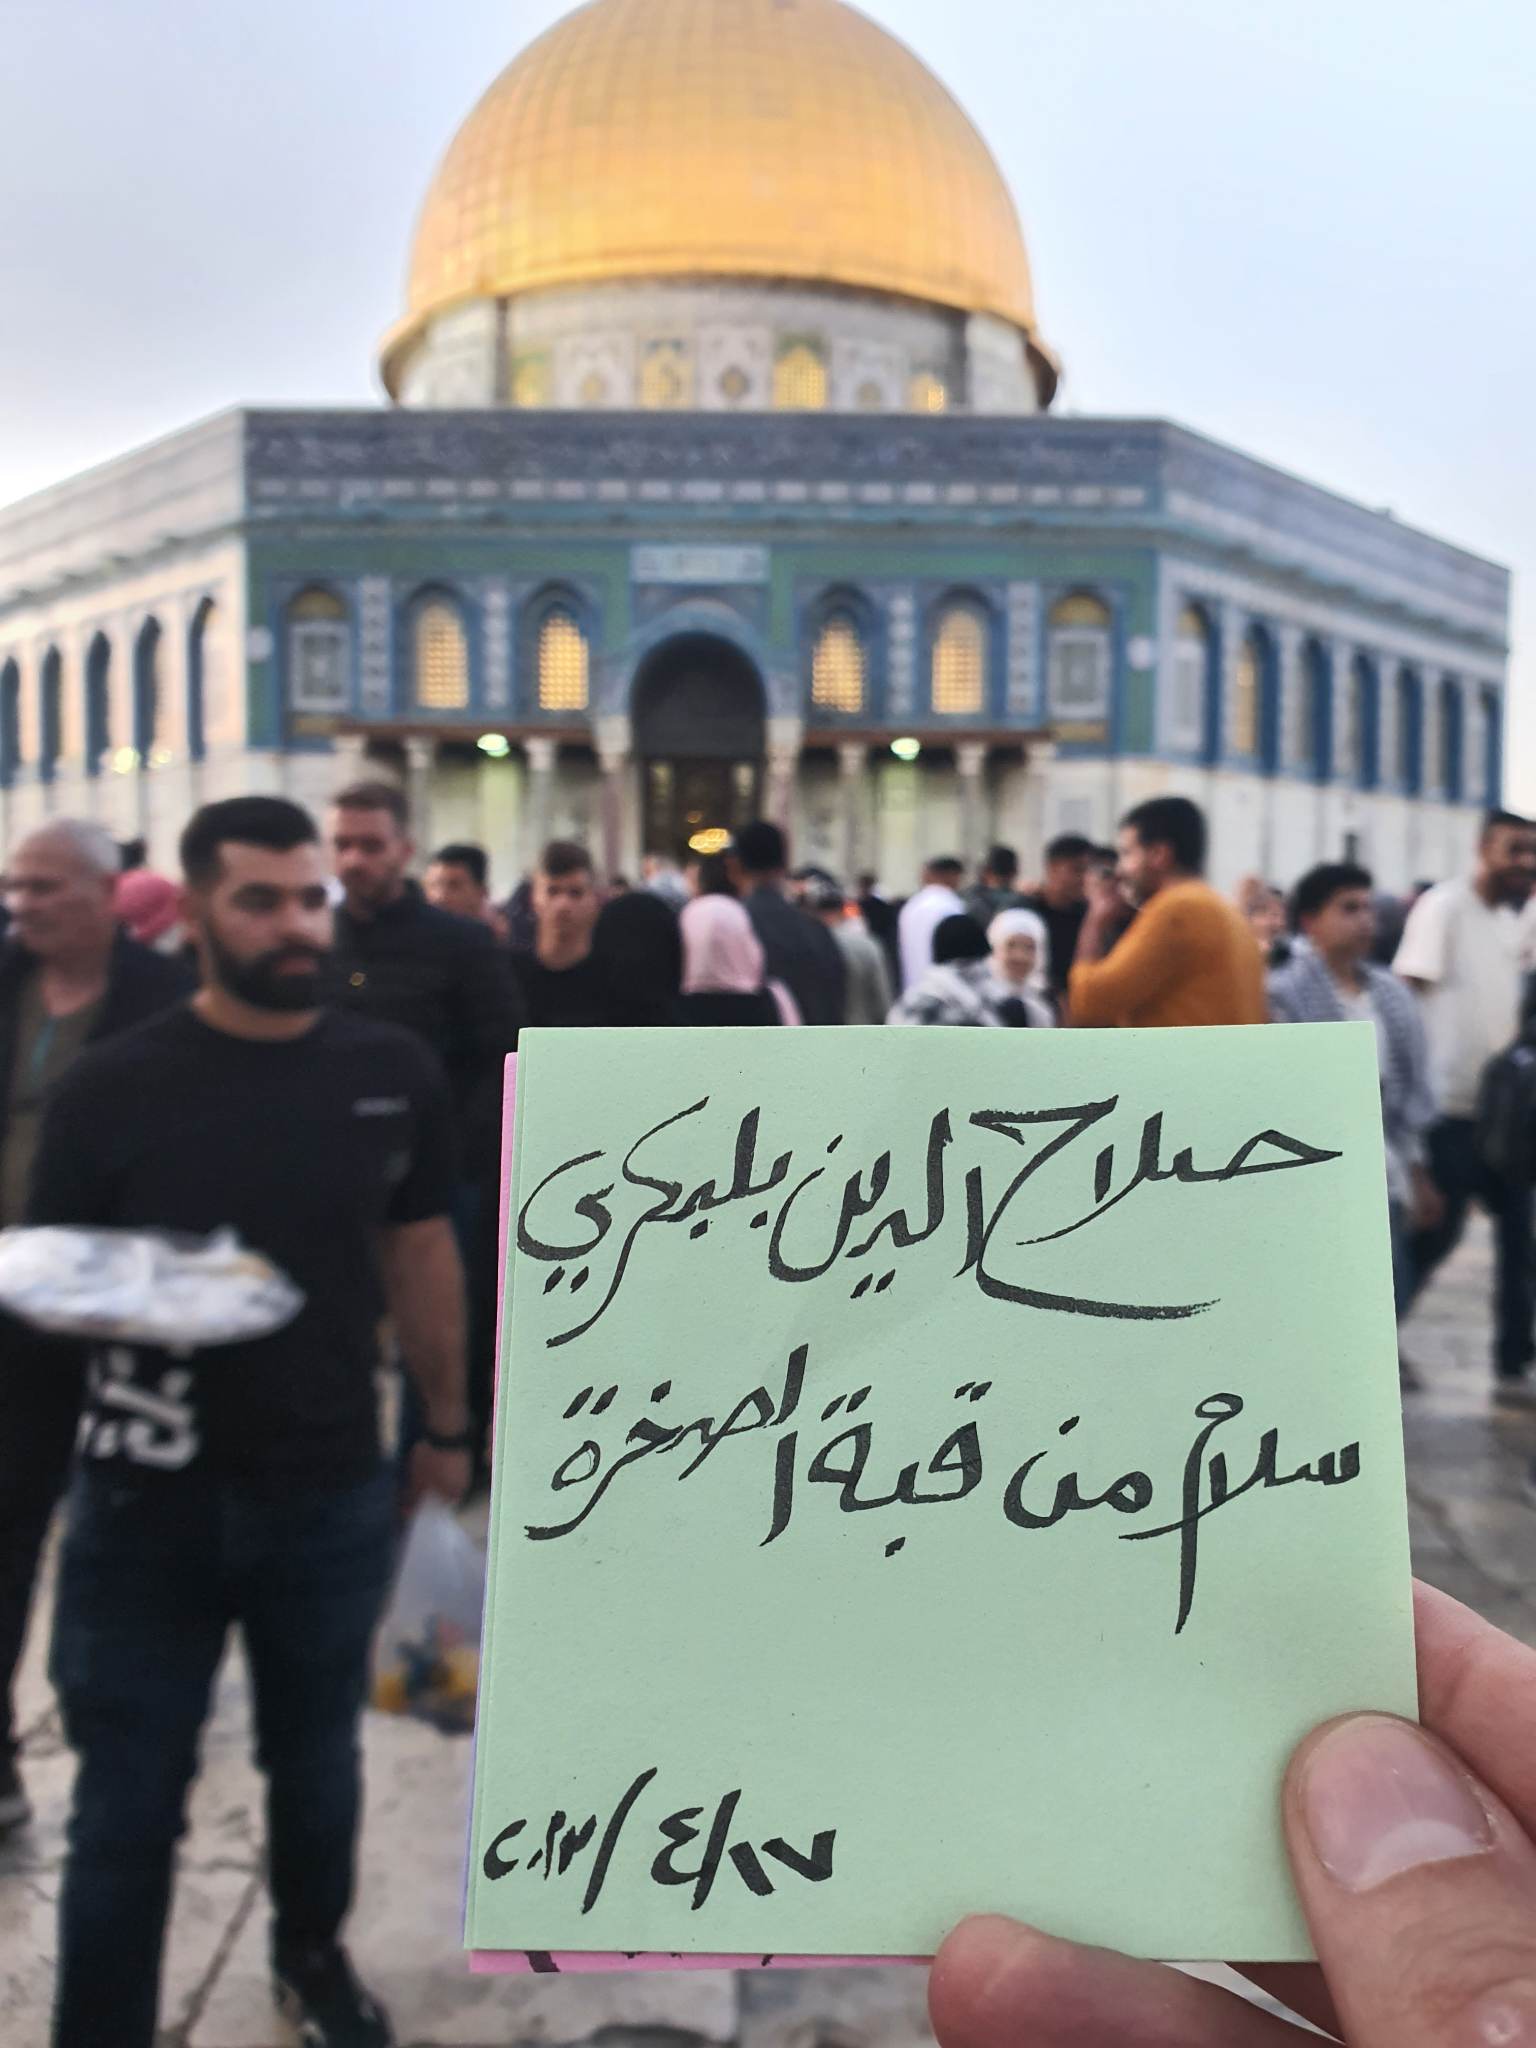 صلاح الدين بلبكري
سلام من قبة الصخرة
١٧/٤/٢٠٢٣